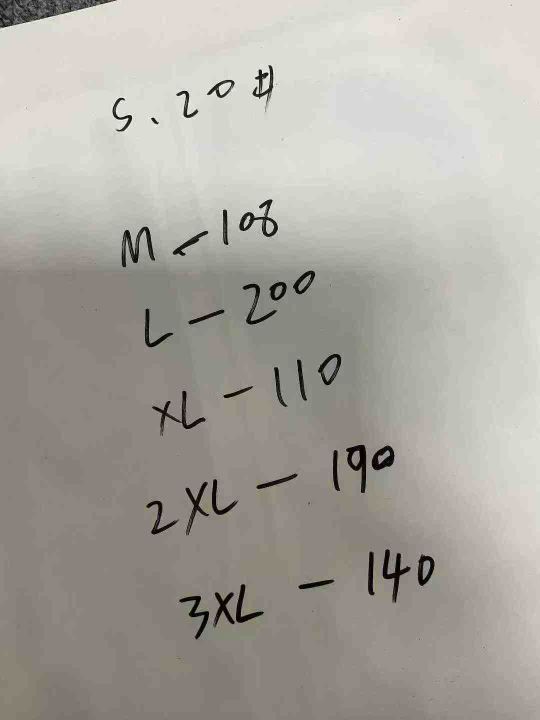 S. 20#
M - 108
L - 200
XL - 110
2XL - 190
3XL - 140